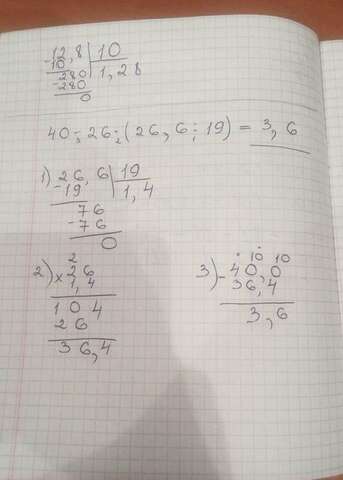 -12,8|10
10 1,28
280
-280
0
40-26·(26,6:19)=3,6
1) 26,6|19
-19 1,4
76
-76
0
2) 2
×26
1,4
104
26
36,4
3) 10 10
-40,0
36,4
3,6